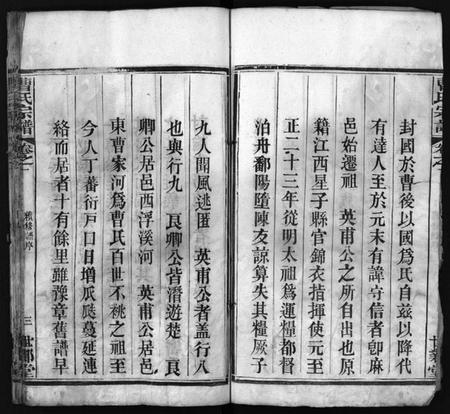 曹氏宗譜
卷之一
封國於曹後以國爲氏自茲以降代
有達人至於元末有諱守信者卽麻
邑始遷祖　英甫公之所自出也原
籍江西星子縣官錦衣指揮使元至
正二十三年從明太祖爲運糧都督
泊舟鄱陽墮陳友諒算失其糧厥子
九人聞風逃匿　英甫公者蓋行八
也與行九　艮卿公皆潛遊楚　艮
卿公居邑西浮溪河　英甫公居邑
東曹家河爲曹氏百世不祧之祖至
今人丁蕃衍戸口日增瓜瓞蔓延連
絡而居者十有餘里雖豫章舊譜早
曹氏宗譜
卷之一
三